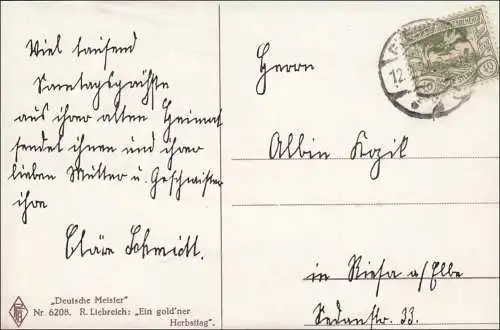 Viel tausend
Sonntagsgrüße
aus ihrer alten Heimat
sendet ihnen und ihrer
lieben Mutter u. Geschwister
ihre
Cläre Schmidt.
Herrn
Albin Kozik
in Riesa a/Elbe
Sedanstr. 33.
„Deutsche Meister"
Nr. 6208. R. Liebreich: „Ein gold'ner
Herbsttag".
12.